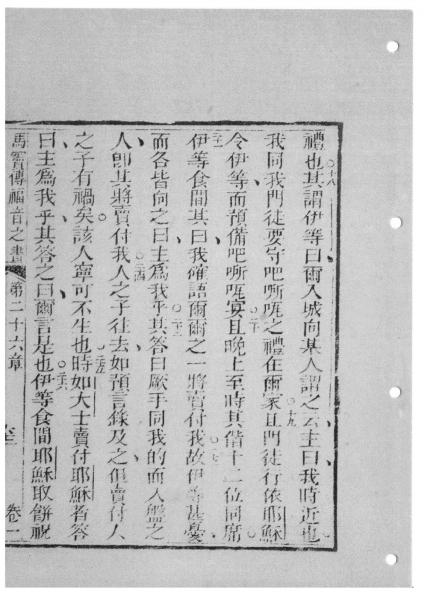 禮也○十八其謂伊等曰爾入城向某人謂之云主曰我時近也
我同我門徒要守吧㗭𠯈之禮在爾家○十九且門徒行依耶穌
令伊等而預備吧㗭𠯈宴○二十且晚上至時其偕十二位同席
○二十一伊等食間其曰我確語爾爾之一將賣付我○二十二故伊等甚憂
而各皆向之曰主為我乎○二十三其答曰厥手同我的而入盤之
人即其將賣付我○二十四人之子往去如預言錄及之但賣付人
之子有禍矣該人寧可不生也○二十五時如大士賣付耶穌者答
曰主為我乎其答之曰爾言是也○二十六伊等食間耶穌取餅祝
馬竇傳福音之書 第二十六章 卷一